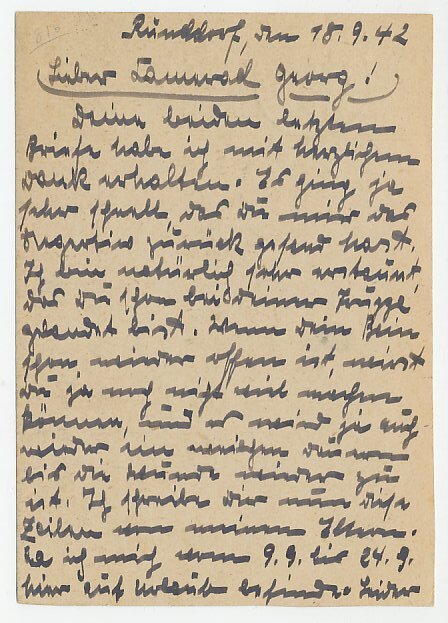 Runddorf, den 18.9.42
Lieber Kamerad Georg!
Deine beiden letzten
Briefe habe ich mit herzlichem
Dank erhalten. Es ging ja
sehr schnell, das Du mir das
Negertiv zurück gesend hast.
Ich bin natürlich sehr erstaunt,
das Du schon bei deiner Truppe
gelandet bist. Wenn dein Bein
schon wieder offen ist, wirst
Du ja noch nicht viel machen
können, und es wird ja auch
wieder ein weilchen dauern
bis die Wunde wieder zu
ist. Ich schreibe dir nun diese
Zeilen von meinen Eltern.
Da ich mich vom 9.9. bis 24.9.
hier auf Urlaub befinde. Leider